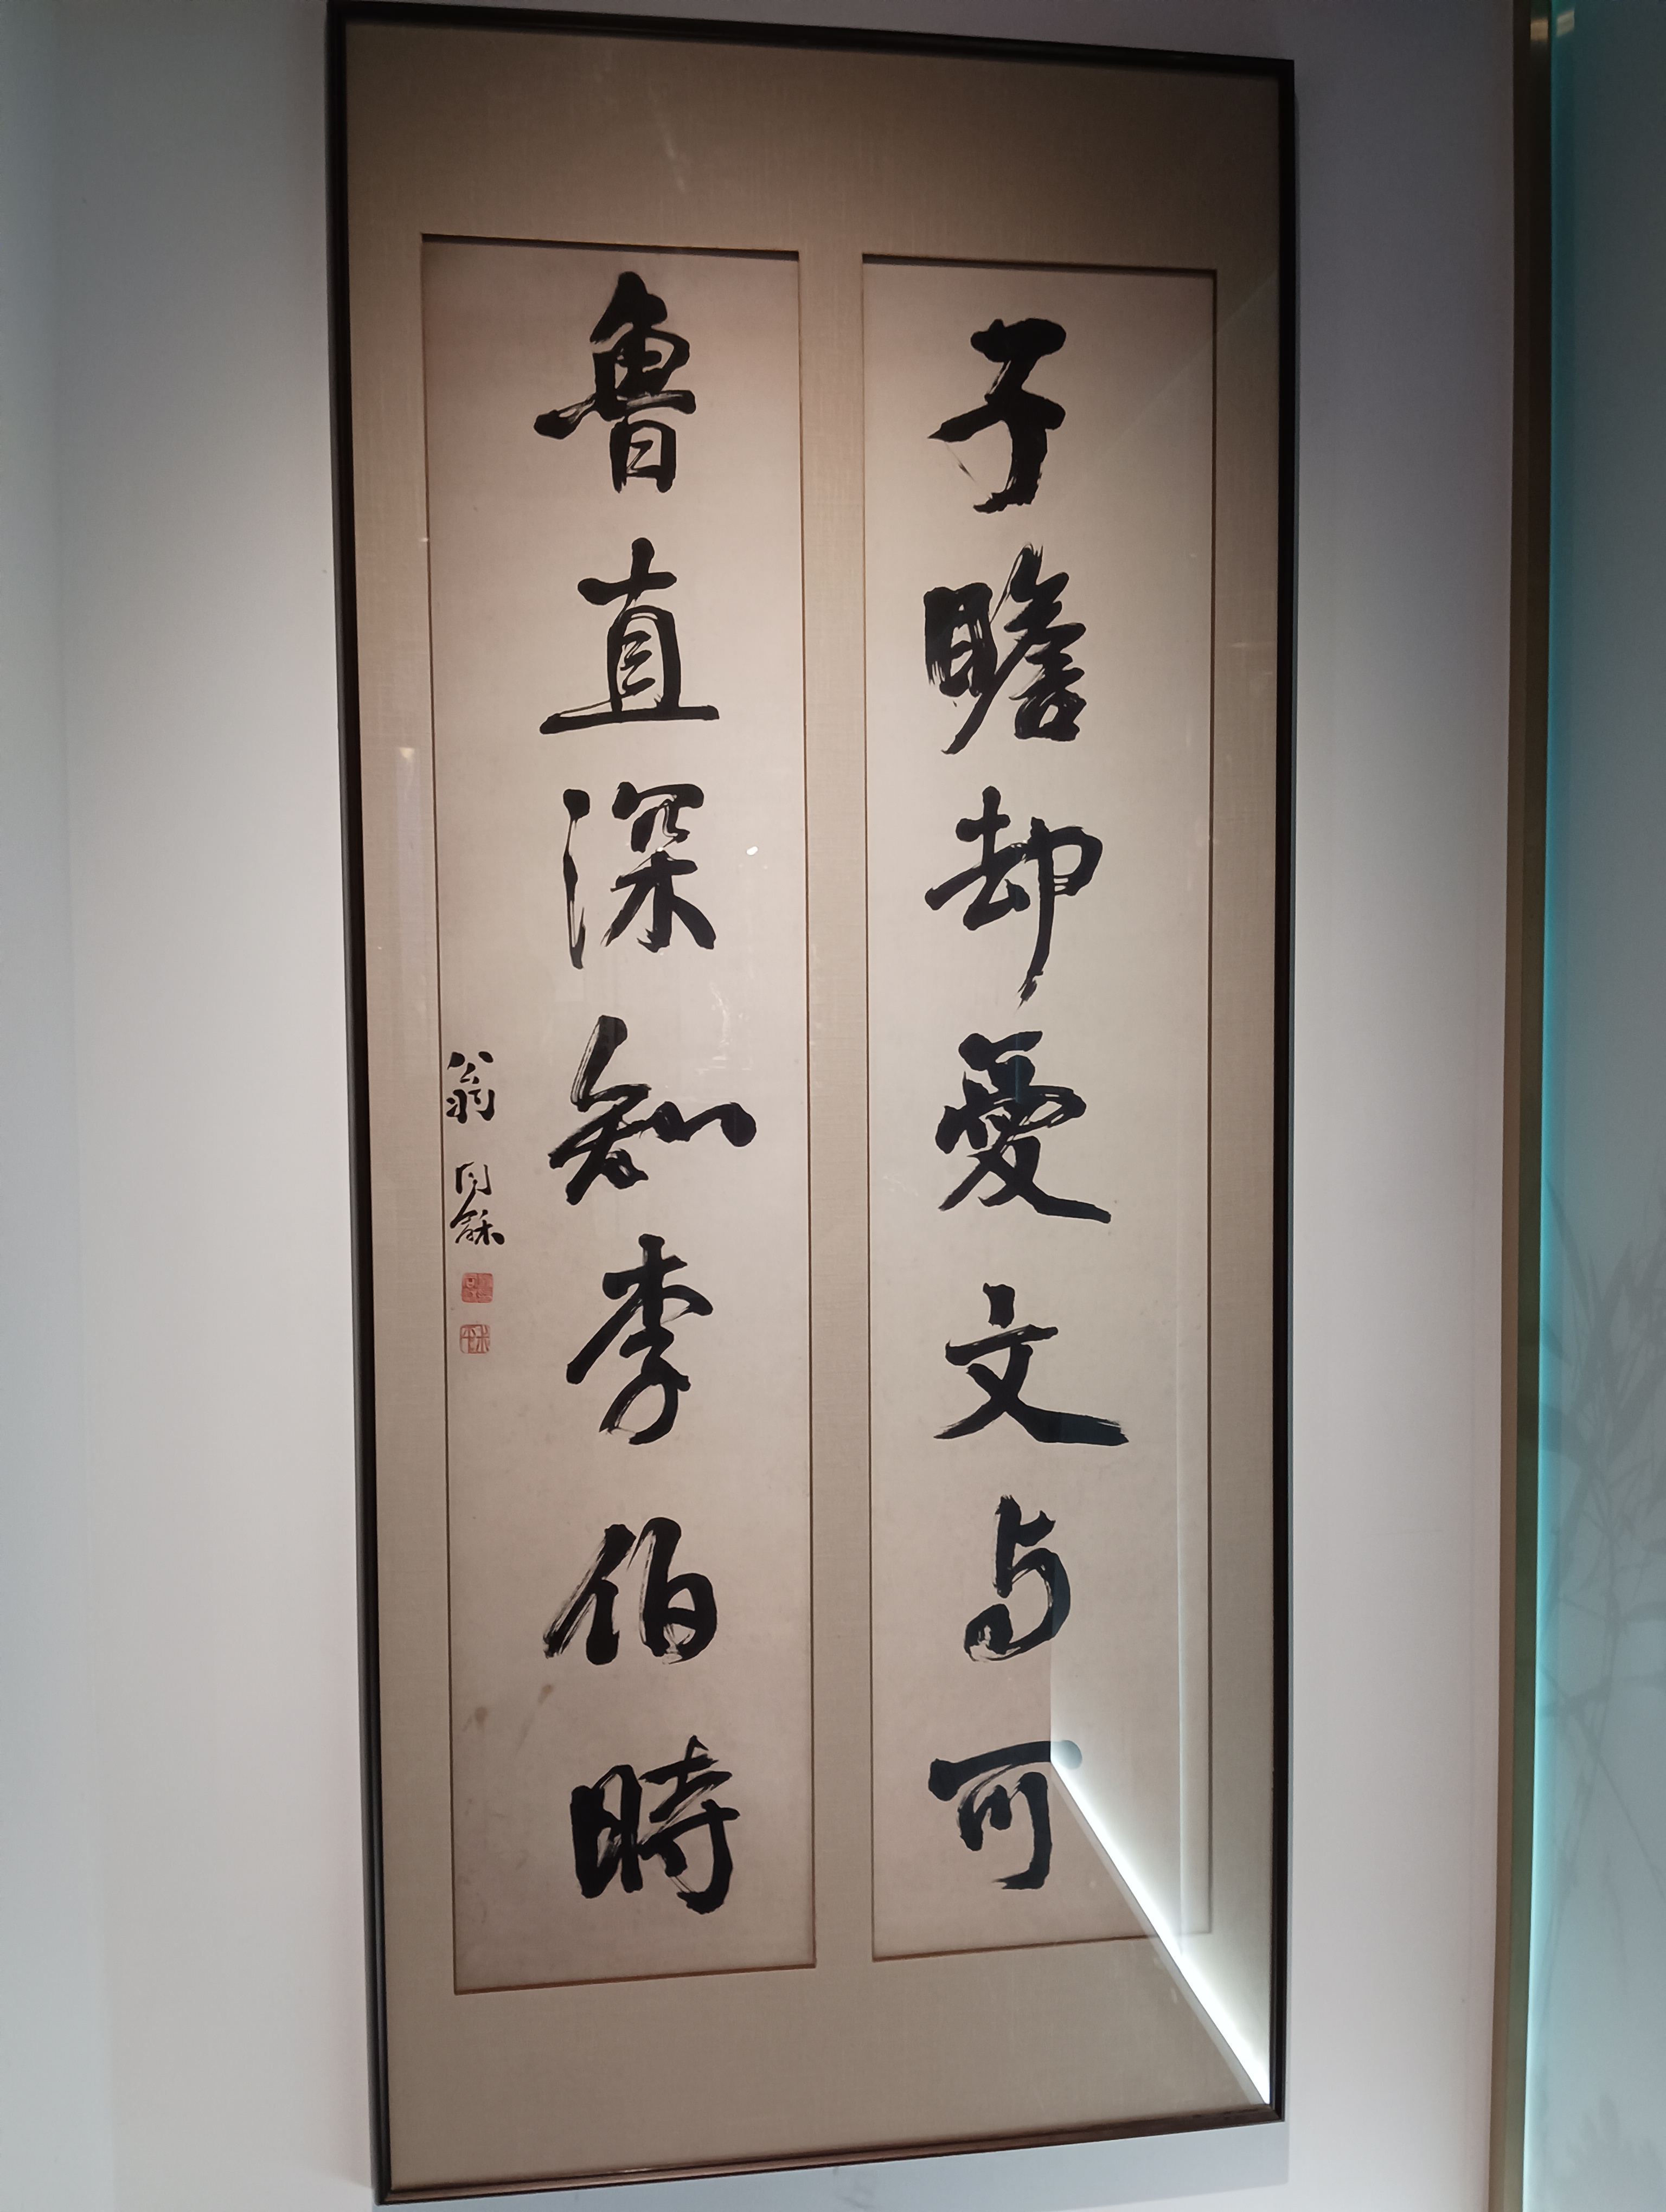 子瞻却愛文与可
魯直深知李伯時
翁同龢